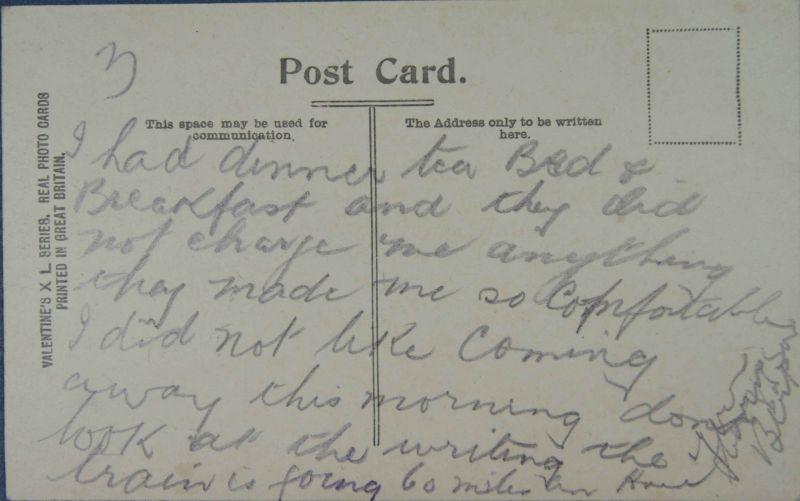 3
Post Card.
This space may be used for
communication.
The Address only to be written
here.
VALENTINE'S X L SERIES. REAL PHOTO CARDS
PRINTED IN GREAT BRITAIN.
I had dinner tea Bed &
Breakfast and they did
not charge me anything
they made me so Comfortable
I did not like Coming
away this morning dont
look at the writing the
train is going 60 miles an hour